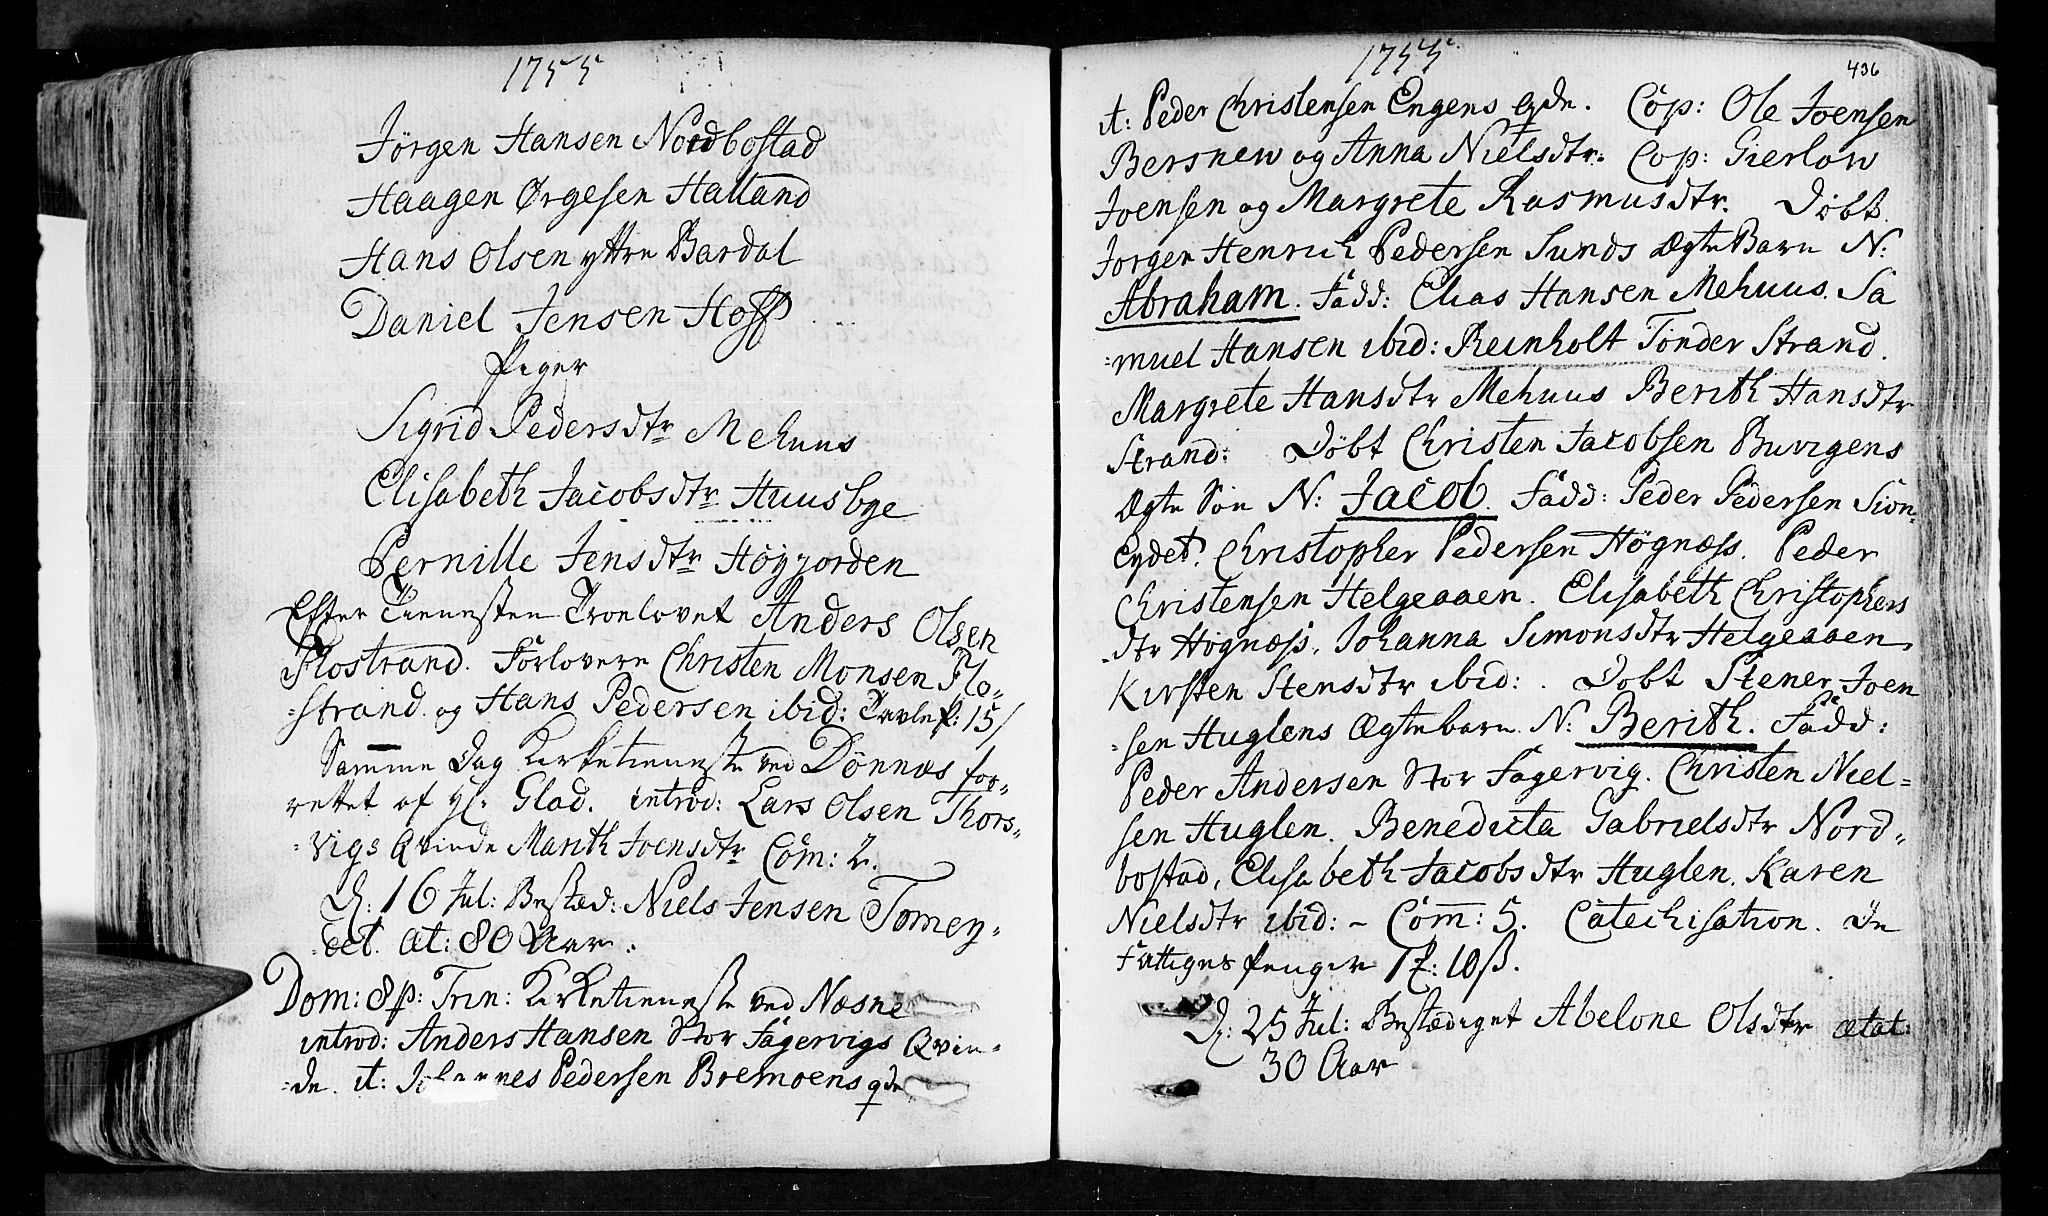 1755
Jörgen Hansen Nordbostad
Haagen Ørgesen Halland
Hans Olsen yttre Bardal
Daniel Jensen Hoff
Piger
Sigrid Pedersdtr Mehuus
Elisabeth Jacobsdtr Huusbye
Pernille Jensdtr Høyjorden
Efter Tienesten Troelovet Anders Olsen
Flostrand. Forlovere Christen Monsen Flo-
=strand og Hans Pedersen ibid: Tavlep: 15/
Samme Dag Kirketieneste ved Dönnæs for-
rettet af Hr: Glad. introd: Lars Olsen Thors-
=vigs Qvinde Marith Joensdtr Com: 2.
D: 16 Jul: Bestæd: Niels Jensen Tomey-
=det. æt: 80 Aar.
Dom: 8 p: Trin: Kirketieneste ved Næsne
introd: Anders Hansen Stor Fagervigs Qvin-
=de. it: Johannes Pedersen Bremoens qde
1755.
436
it: Peder Christensen Engens qde. Cop: Ole Joensen
Bersnew og Anna Nielsdtr. Cop: Gierlow
Joensen og Margrete Rasmusdtr. Döbt
Jorgen Henrich Pedersen Sunds ÆgteBarn N:
Abraham. Fadd: Elias Hansen Mehuus. Sa
=muel Hansen ibid: Reinholt Tönder Strand.
Margrete Hansdtr Mehuus Berith Hansdtr
Strand: Döbt Christen Jacobsen Buvigens
Ægte Sön N: Jacob. Fadd: Peder Pedersen Sion-
eydet. Christopher Pedersen Högnæss. Peder
Christensen Helgeaaen. Elisabeth Christophers
dtr Högnæss, Johanna Simonsdtr Helgeaaen
Kirsten Stensdtr ibid: . Döbt Stener Joen
=sen Huglens Ægtebarn N: Berith. Fadd:
Peder Andersen Stor Fagervig. Christen Niel=
sen Huglen. Benedicta Gabrielsdtr Nord=
bostad, Elisabeth Jacobsdtr Huglen. Karen
Nielsdtr ibid: - Com: 5. Catechisation. De
Fattiges Penger 10 ß.
D: 25 Jul: Bestædiget Abelone Olsdtr ætat:
30 Aar